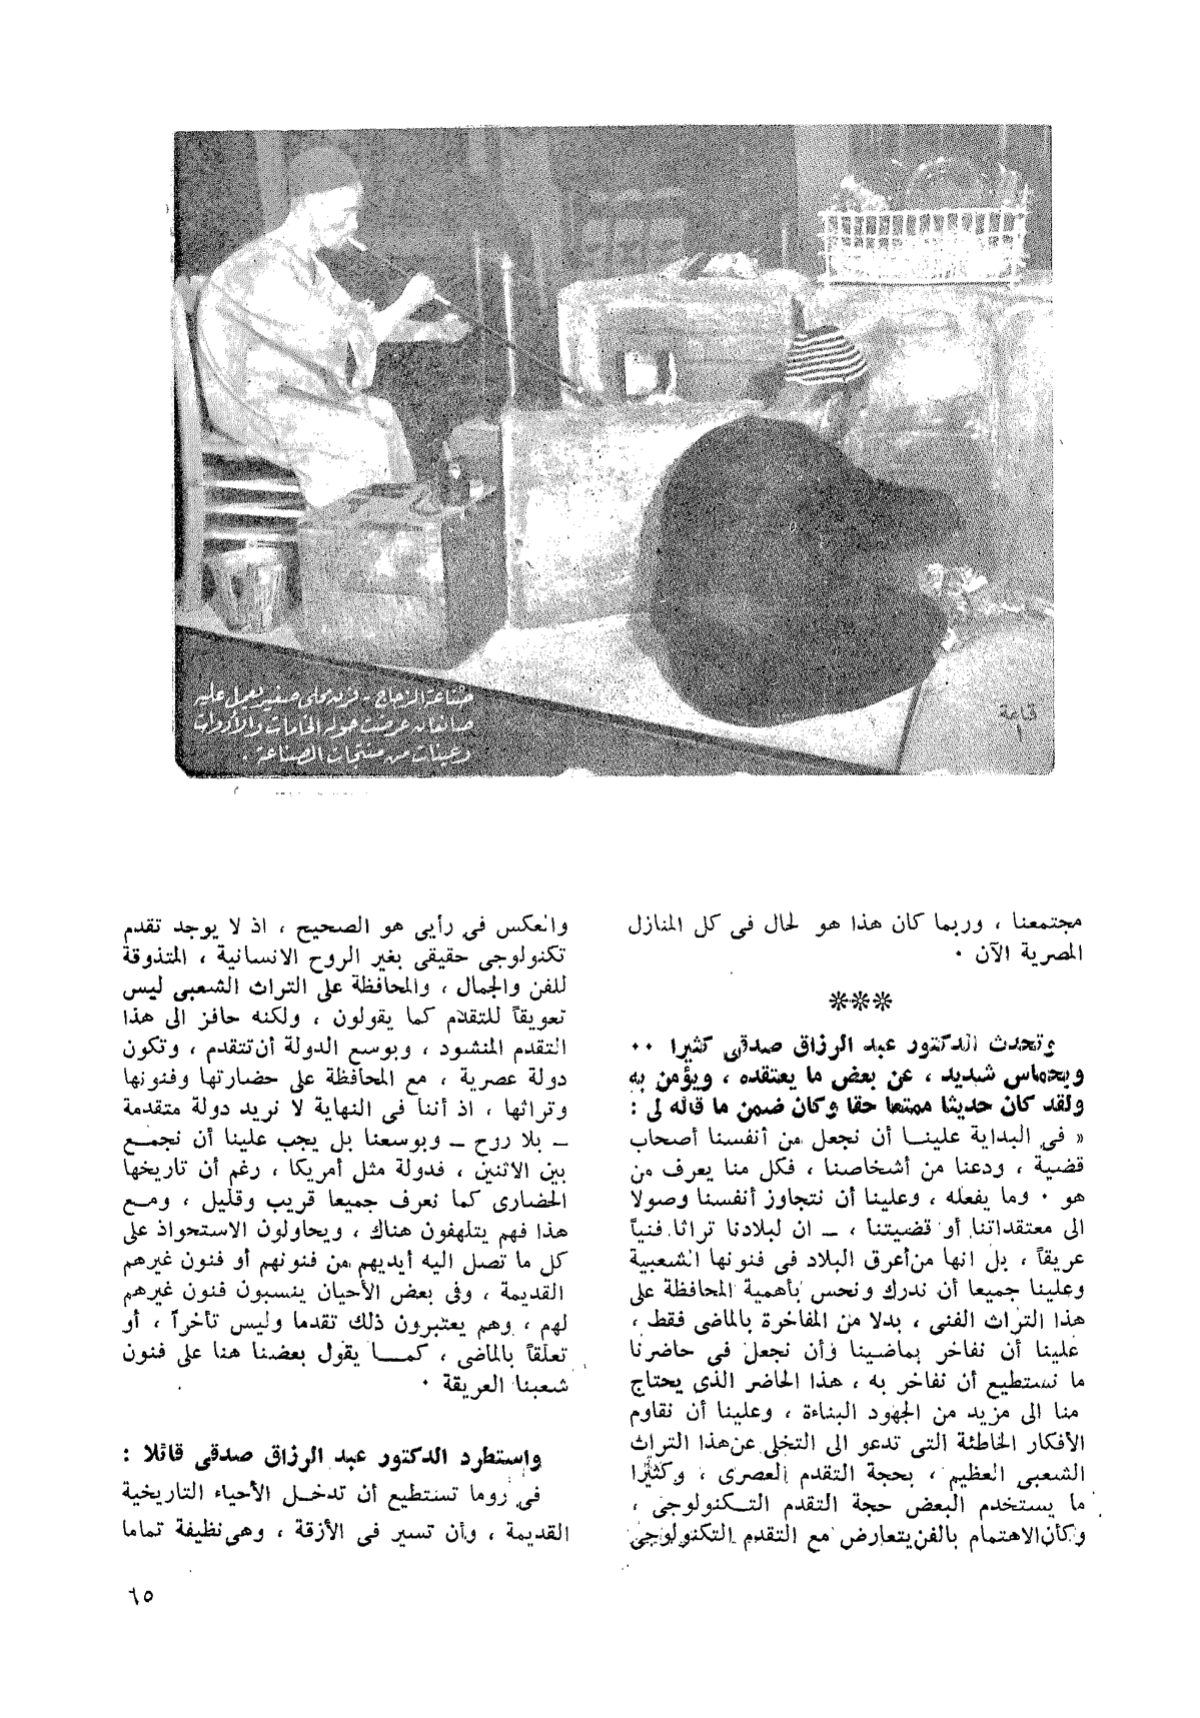 صناعة الزجاج - فرن محلى صغير يعمل عليه
صانعان عرضت حوله الخامات والأدوات
وعينات من منتجات الصناعة .
قاعة
١
مجتمعنا ، وربما كان هذا هو لحال فى كل المنازل
المصرية الآن ٠
***
وتحدث الدكتور عبد الرزاق صدقى كثيرا ٠٠
وبحماس شديد ، عن بعض ما يعتقده ، ويؤمن به
ولقد كان حديثا ممتعا حقا وكان ضمن ما قاله لى :
« فى البداية علينا أن نجعل من أنفسنا أصحاب
قضية ، ودعنا من أشخاصنا ، فكل منا يعرف من
هو ٠ وما يفعله ، وعلينا أن نتجاوز أنفسنا وصولا
الى معتقداتنا أو قضيتنا ، – ان لبلادنا تراثا فنياً
عريقاً ، بل انها من أعرق البلاد فى فنونها الشعبية
وعلينا جميعا أن ندرك ونحس بأهمية المحافظة على
هذا التراث الفنى ، بدلا من المفاخرة بالماضى فقط ،
علينا أن نفاخر بماضينا وأن نجعل فى حاضرنا
ما نستطيع أن نفاخر به ، هذا الحاضر الذى يحتاج
منا الى مزيد من الجهود البناءة ، وعلينا أن نقاوم
الأفكار الخاطئة التى تدعو الى التخلى عن هذا التراث
الشعبى العظيم ، بحجة التقدم العصرى ، وكثيرا
ما يستخدم البعض حجة التقدم التكنولوجى ،
وكأن الاهتمام بالفن يتعارض مع التقدم التكنولوجى
والعكس فى رأيى هو الصحيح ، اذ لا يوجد تقدم
تكنولوجى حقيقى بغير الروح الانسانية ، المتذوقة
للفن والجمال ، والمحافظة على التراث الشعبى ليس
تعويقاً للتقدم كما يقولون ، ولكنه حافز الى هذا
التقدم المنشود ، وبوسع الدولة أن تتقدم ، وتكون
دولة عصرية ، مع المحافظة على حضارتها وفنونها
وتراثها ، اذ أننا فى النهاية لا نريد دولة متقدمة
– بلا روح – وبوسعنا بل يجب علينا أن نجمع
بين الاثنين ، فدولة مثل أمريكا ، رغم أن تاريخها
الحضارى كما نعرف جميعا قريب وقليل ، ومع
هذا فهم يتلهفون هناك ، ويحاولون الاستحواذ على
كل ما تصل اليه أيديهم من فنونهم أو فنون غيرهم
القديمة ، وفى بعض الأحيان ينسبون فنون غيرهم
لهم ، وهم يعتبرون ذلك تقدما وليس تأخراً ، أو
تعلقاً بالماضى ، كما يقول بعضنا هنا على فنون
شعبنا العريقة ٠
واستطرد الدكتور عبد الرزاق صدقى قائلا :
فى روما تستطيع أن تدخل الأحياء التاريخية
القديمة ، وأن تسير فى الأزقة ، وهى نظيفة تماما
٦٥